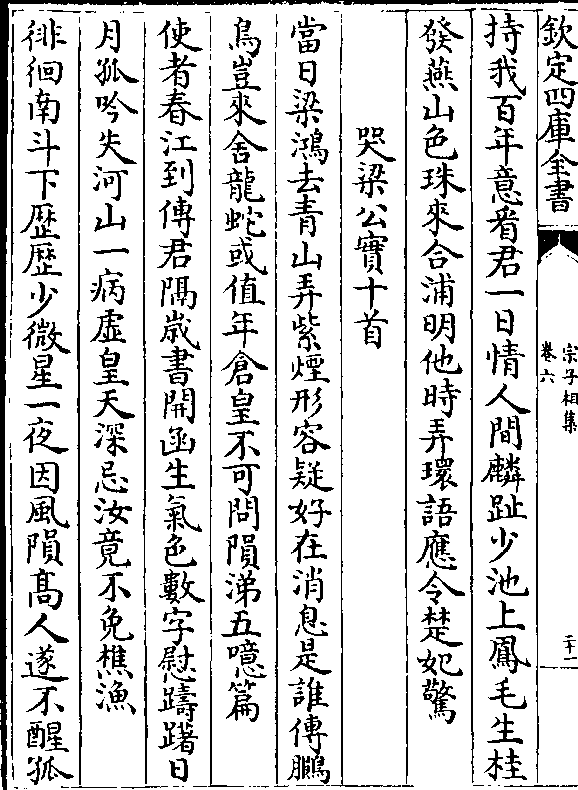 欽定四庫全書
宗子相集
卷六
二十一
持我百年意看君一日情人間麟趾少池上鳳毛生桂
發燕山色珠來合浦明他時弄環語應令楚妃驚
哭梁公實十首
當日梁鴻去青山弄紫煙形容疑好在消息是誰傳鵩
鳥豈來舍龍蛇或值年倉皇不可問隕涕五噫篇
使者春江到傳君隔歲書開函生氣色數字慰躊躇日
月孤吟失河山一病虛皇天深忌汝竟不免樵漁
徘徊南斗下歴歴少微星一夜因風隕髙人遂不醒孤